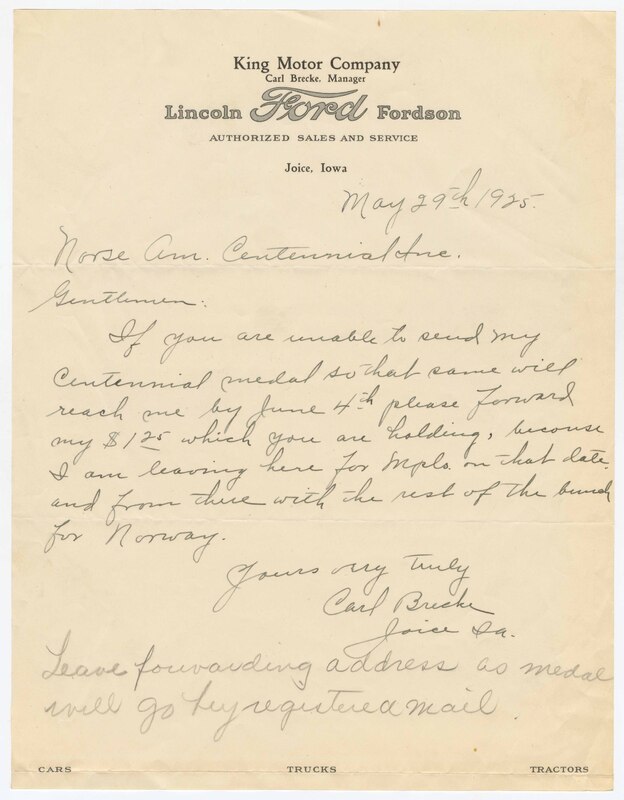 King Motor Company
Carl Brecke, Manager
Lincoln Ford Fordson
AUTHORIZED SALES AND SERVICE
Joice, Iowa
May 29th 1925.
Norse Am. Centennial Inc.
Gentlemen:
If you are unable to send my
Centennial medal so that same will
reach me by June 4th please forward
my $1 25 which you are holding, because
I am leaving here for Mpls. on that date.
and from there with the rest of the bunch
for Norway.
Yours very truly
Carl Brecke
Joice Ia.
Leave forwarding address as medal
will go by registered mail.
CARS TRUCKS TRACTORS